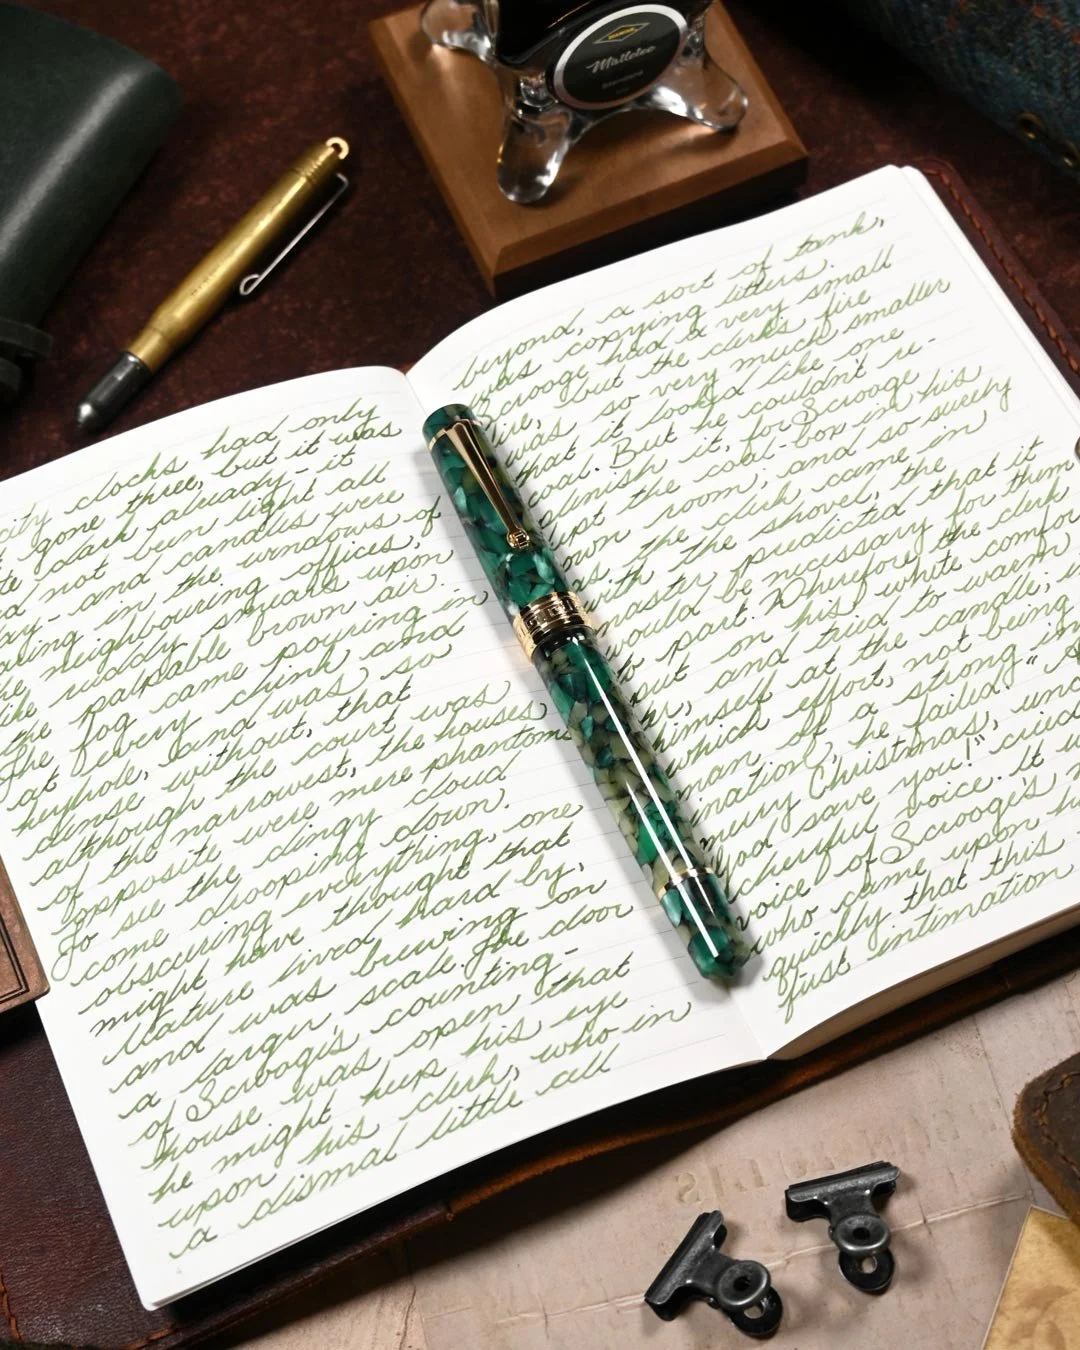 Matteleo
Standard
city clocks had only
gone three, but it was
te dark already - it
d not been light all
ay - and candles were
aring in the windows of
he neighbouring offices,
like ruddy smears upon
the palpable brown air.
The fog came pouring in
at every chink and
keyhole, and was so
dense without, that
although the court was
of the narrowest, the houses
opposite were mere phantoms.
To see the dingy cloud
come drooping down,
obscuring everything, one
might have thought that
Nature lived hard by,
and was brewing on
a larger scale. The door
of Scrooge's counting-
house was open that
he might keep his eye
upon his clerk, who in
a dismal little cell
beyond, a sort of tank,
was copying letters.
Scrooge had a very small
fire, but the clerk's fire
was so very much smaller
that it looked like one
coal. But he couldn't re-
plenish it, for Scrooge
kept the coal-box in his
own room; and so surely
as the clerk came in
with the shovel, the
master predicted that it
would be necessary for them
to part. Wherefore the clerk
put on his white comfor
er, and tried to warm
himself at the candle; in
which effort, not being
man of a strong im
ination, he failed. "A
merry Christmas, unc
God save you!" cried
cheerful voice. It w
voice of Scrooge's n
who came upon hi
quickly that this
first intimation